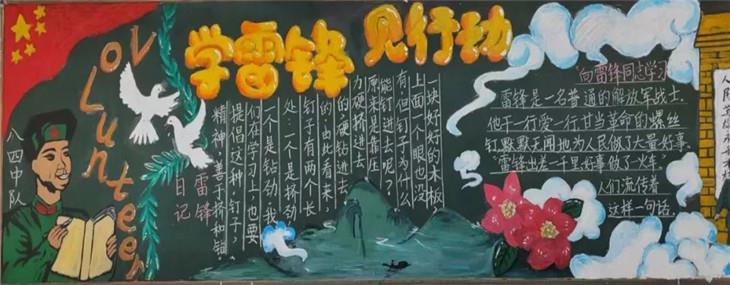 学雷锋 见行动
VoLunteer
八四中队
一块好好的木板,
上面一个眼也没
有,但钉子为什么
能钉进去呢?
原来是靠压
力硬挤进去
的,硬钻进去
的。由此看来,
钉子有两个长
处:一个是挤劲,
一个是钻劲。我
们在学习上,也要
提倡这种“钉子”
精神,善于挤和钻。
雷锋
日记
向雷锋同志学习
雷锋是一名普通的解放军战士,
他干一行爱一行甘当革命的螺丝
钉,默默无闻地为人民做了大量好事.
“雷锋出差一千里,好事做了一火车”
人们流传着
这样一句话.
人民英雄永垂不朽